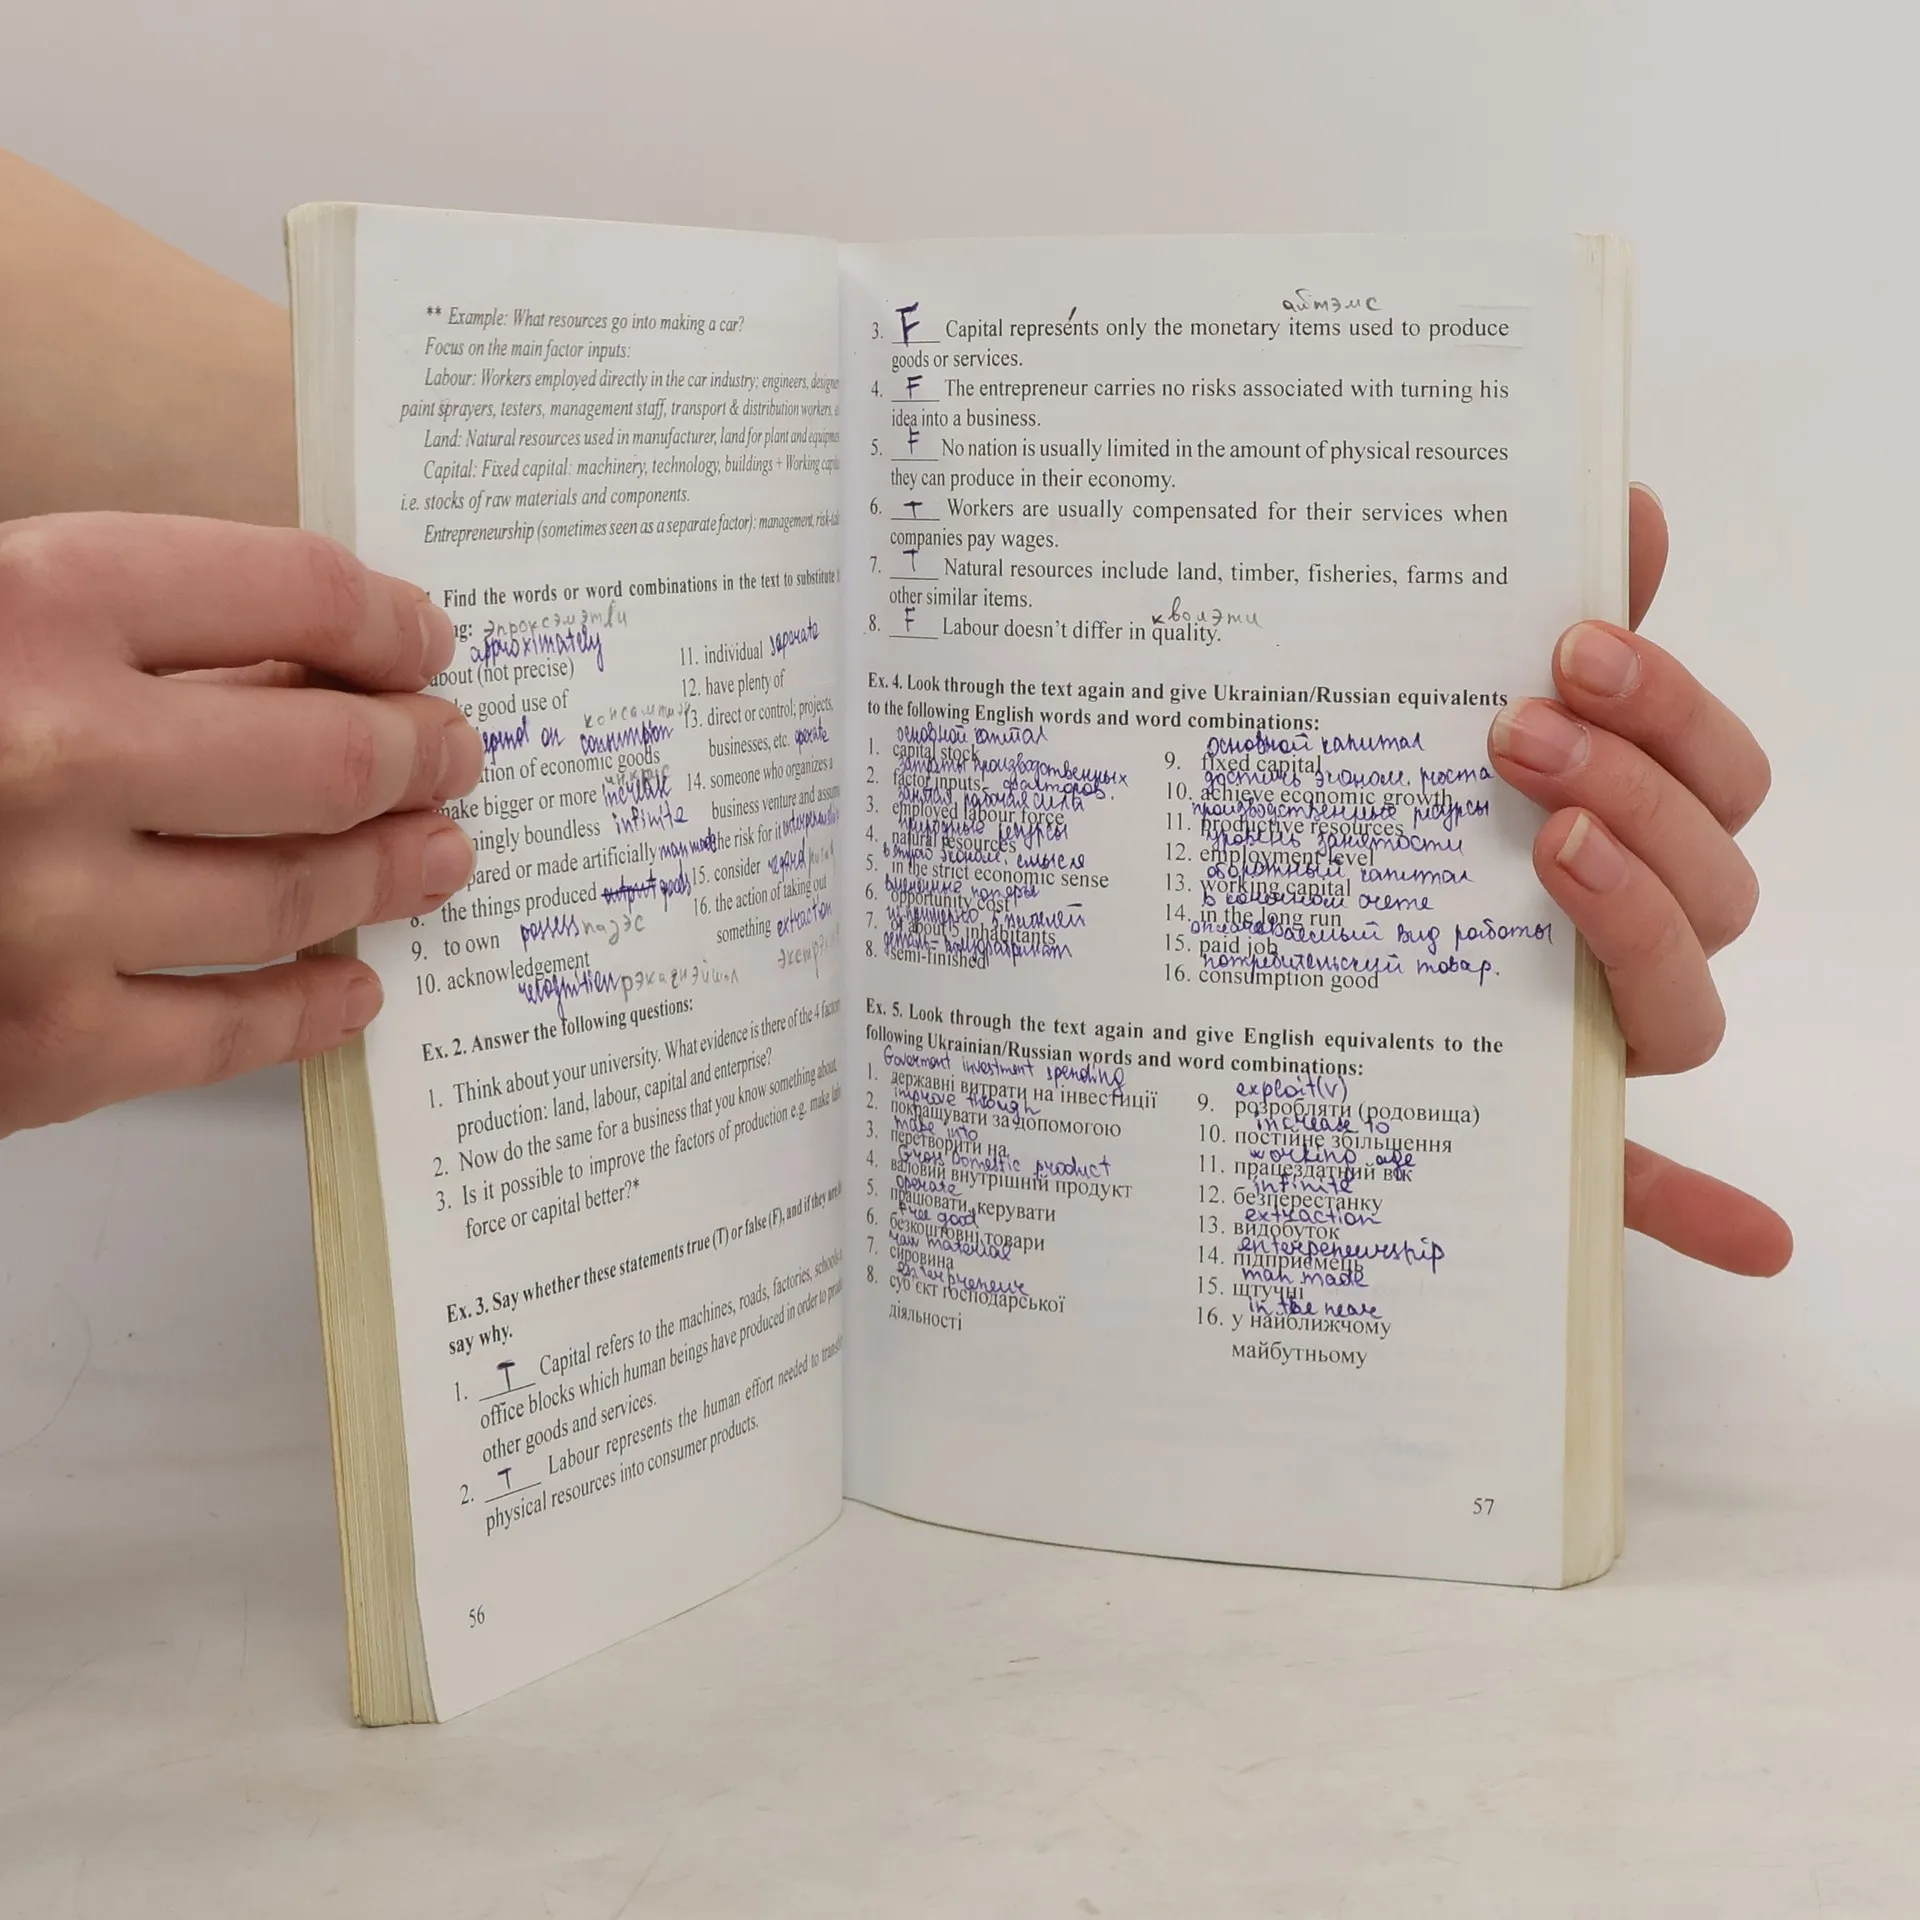 ** Example: What resources go into making a car?
Focus on the main factor inputs:
Labour: Workers employed directly in the car industry; engineers,
paint sprayers, testers, management staff, transport & distribution workers,
Land: Natural resources used in manufacturer, land for plant and
Capital: Fixed capital: machinery, technology, buildings + Working
i.e. stocks of raw materials and components.
Entrepreneurship (sometimes seen as a separate factor): management,
Find the words or word combinations in the text to substitute
approximately
about (not precise)
good use of
консампшн
on consumption
of economic goods
make bigger or more increase
boundless infinite
or made artificially man made
8. the things produced output goods
9. to own possess
10. acknowledgement
recognition
11. individual separate
12. have plenty of
13. direct or control; projects,
businesses, etc. operate
14. someone who organizes a
business venture and
the risk for it
15. consider regard
16. the action of taking out
something extraction
Ex. 2. Answer the following questions:
1. Think about your university. What evidence is there of the 4
production: land, labour, capital and enterprise?
2. Now do the same for a business that you know something about
3. Is it possible to improve the factors of production e.g. make
force or capital better?*
Ex. 3. Say whether these statements true (T) or false (F), and if they are
say why.
1. T Capital refers to the machines, roads, factories,
office blocks which human beings have produced in order to
other goods and services.
2. T Labour represents the human effort needed to
physical resources into consumer products.
56
айтэмс
3. F Capital represents only the monetary items used to produce
goods or services.
4. F The entrepreneur carries no risks associated with turning his
idea into a business.
5. F No nation is usually limited in the amount of physical resources
they can produce in their economy.
6. T Workers are usually compensated for their services when
companies pay wages.
7. T Natural resources include land, timber, fisheries, farms and
other similar items.
кволэти
8. F Labour doesn't differ in quality.
Ex. 4. Look through the text again and give Ukrainian/Russian equivalents
to the following English words and word combinations:
основной капитал
1. capital stock
затраты производственных
2. factor inputs факторов.
занятая рабочая сила
3. employed labour force
природные ресурсы
4. natural resources
эконом. смысле
5. in the strict economic sense
6. opportunity cost
7. of about 5 inhabitants
8. semi-finished
основной капитал
9. fixed capital
достичь эконом. роста
10. achieve economic growth
производственные ресурсы
11. productive resources
уровень занятости
12. employment level
оборотный капитал
13. working capital
в конечном счете
14. in the long run
оплачиваемый вид работы
15. paid job
потребительский товар.
16. consumption good
Ex. 5. Look through the text again and give English equivalents to the
following Ukrainian/Russian words and word combinations:
Goverment investment spending
1. державні витрати на інвестиції
improve though
2. покращувати за допомогою
make into
3. перетворити на
Gross Domestic product
4. валовий внутрішній продукт
operate
5. працювати, керувати
free good
6. безкоштовні товари
raw material
7. сировина
8. суб'єкт господарської
діяльності
exploit (v)
9. розробляти (родовища)
increase to
10. постійне збільшення
working age
11. працездатний вік
infinite
12. безперестанку
extraction
13. видобуток
enterpeneurship
14. підприємець
man made
15. штучні
in the neare
16. у найближчому
майбутньому
57